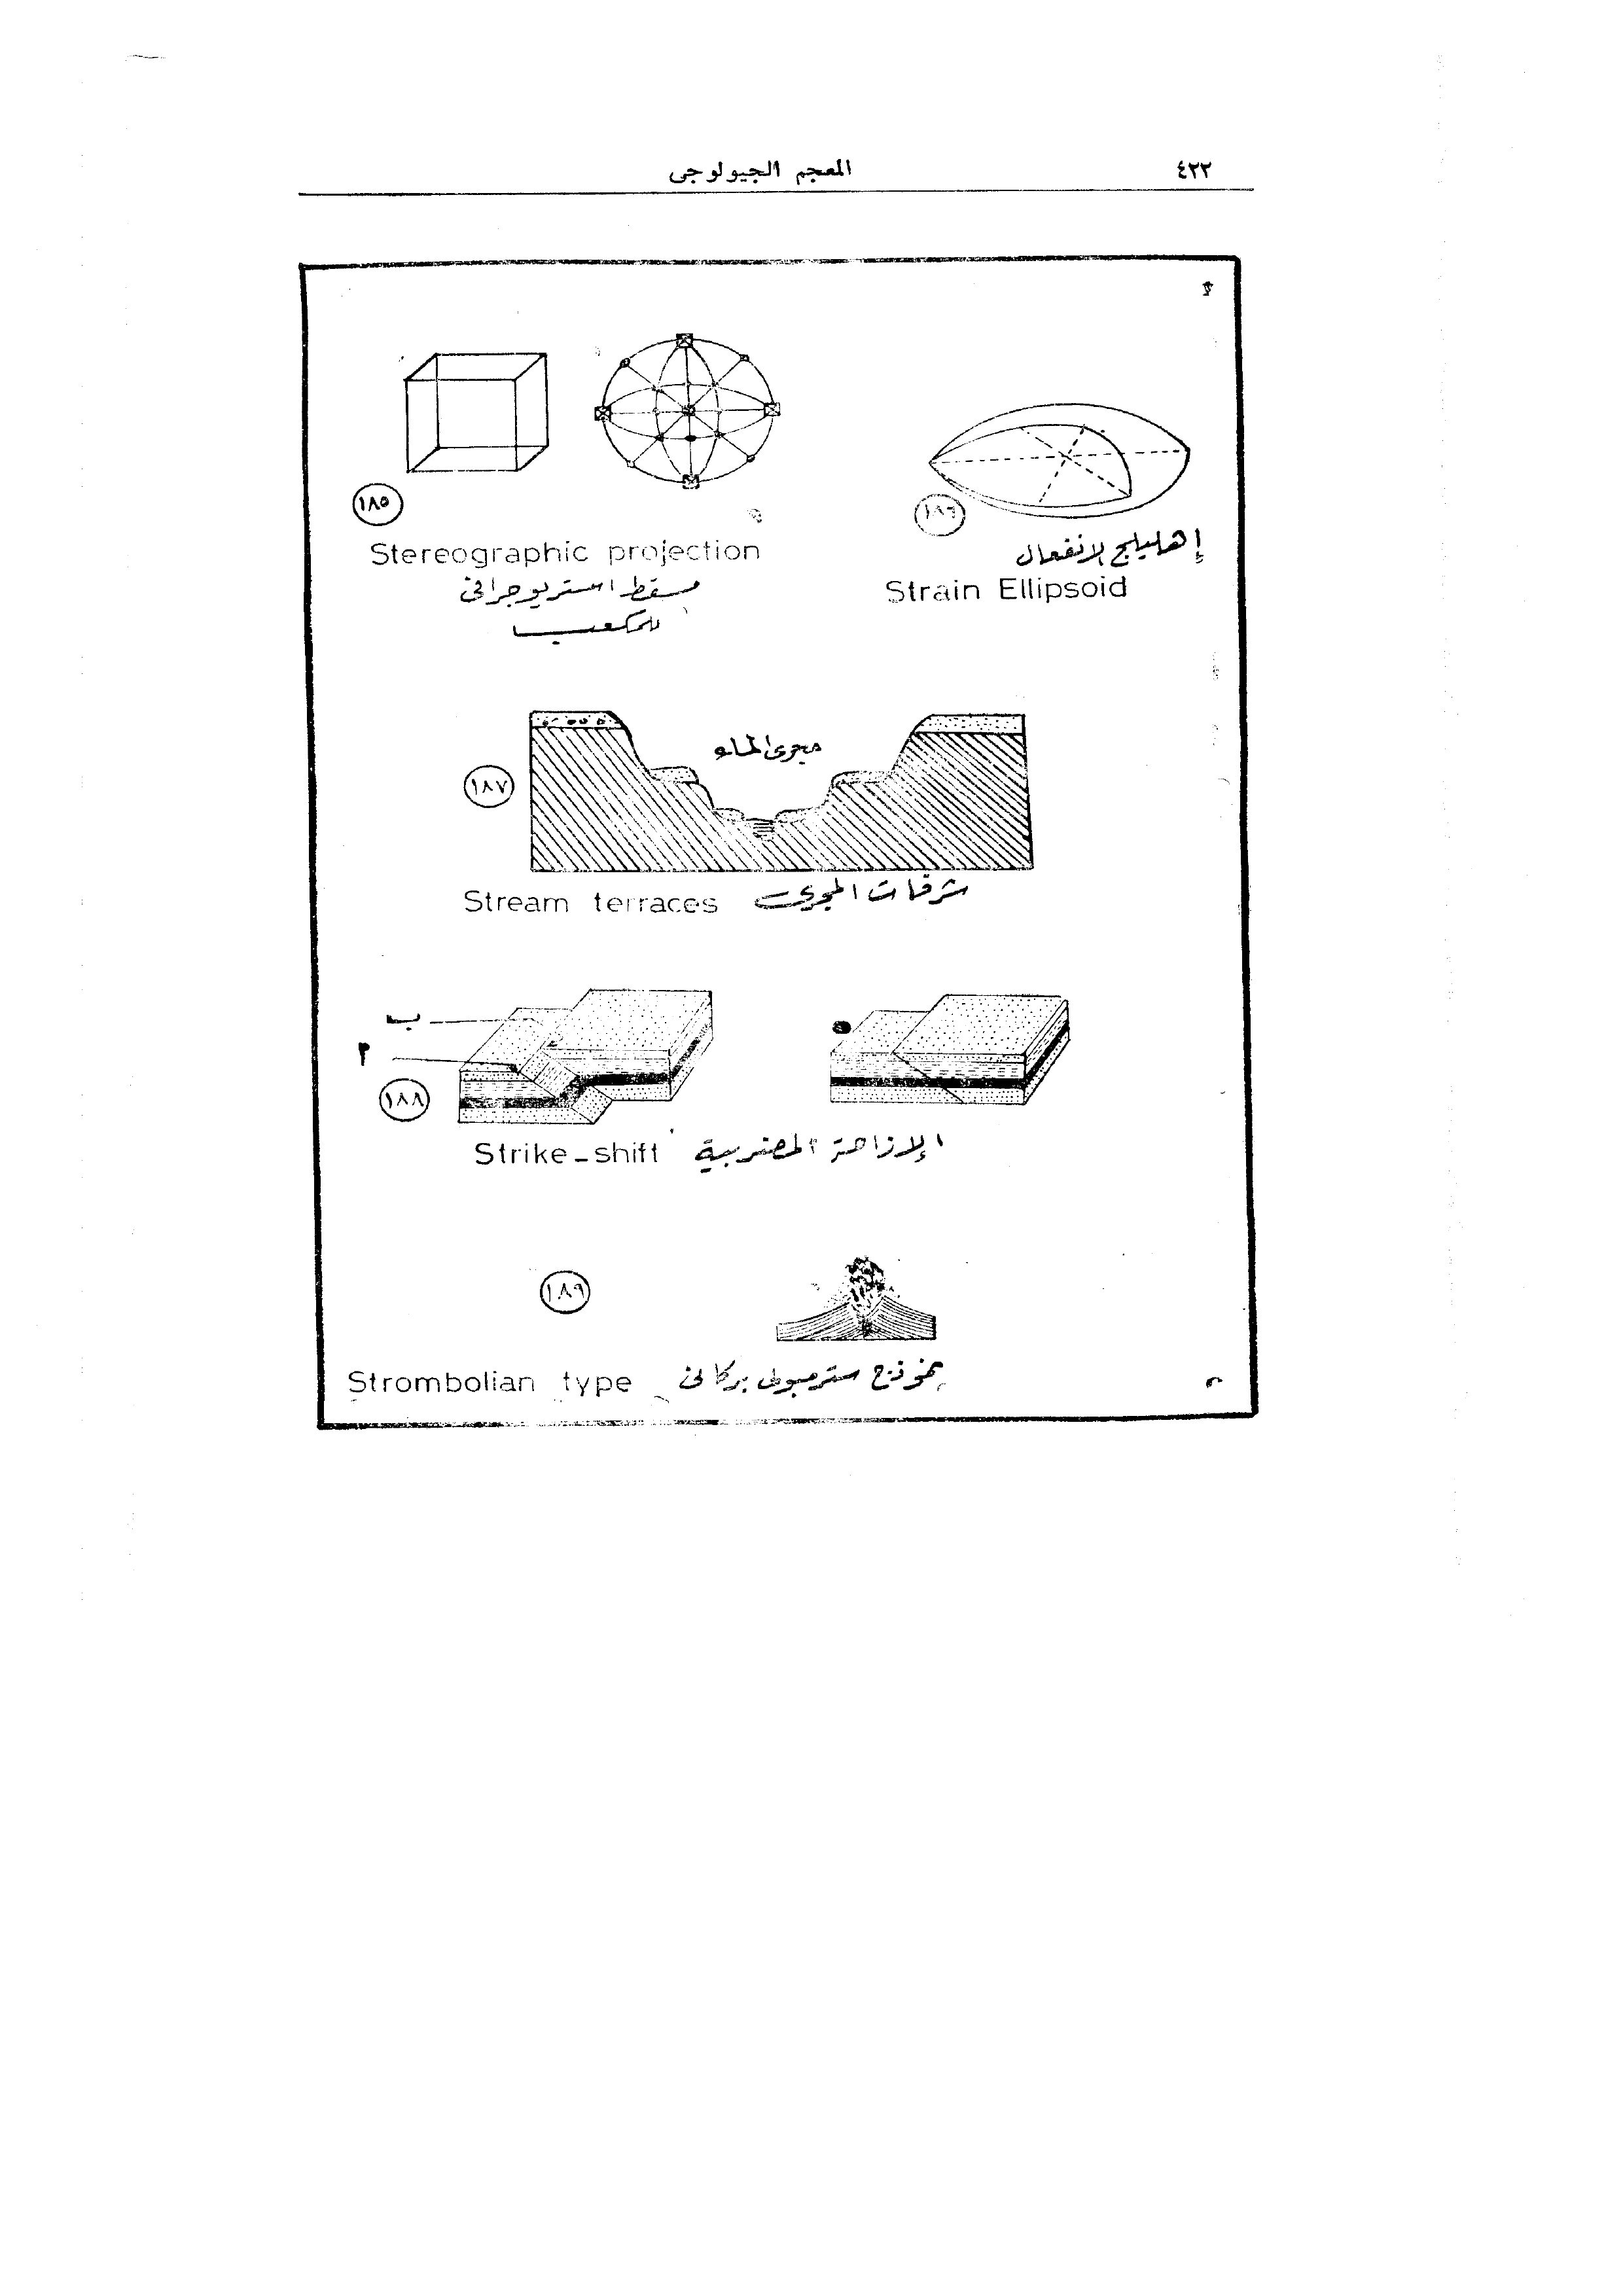 ٤٢٢
المعجم الجيولوجى
١٨٥
Stereographic projection
مسقط استريوجرافى
للمكعب
١٨٦
إهليلج الانفعال
Strain Ellipsoid
مجرى الماء
١٨٧
Stream terraces شرفات المجرى
ب
أ
١٨٨
Strike-shift الإزاحة المضربية
١٨٩
Strombolian type نموذج سترمبولى بركانى